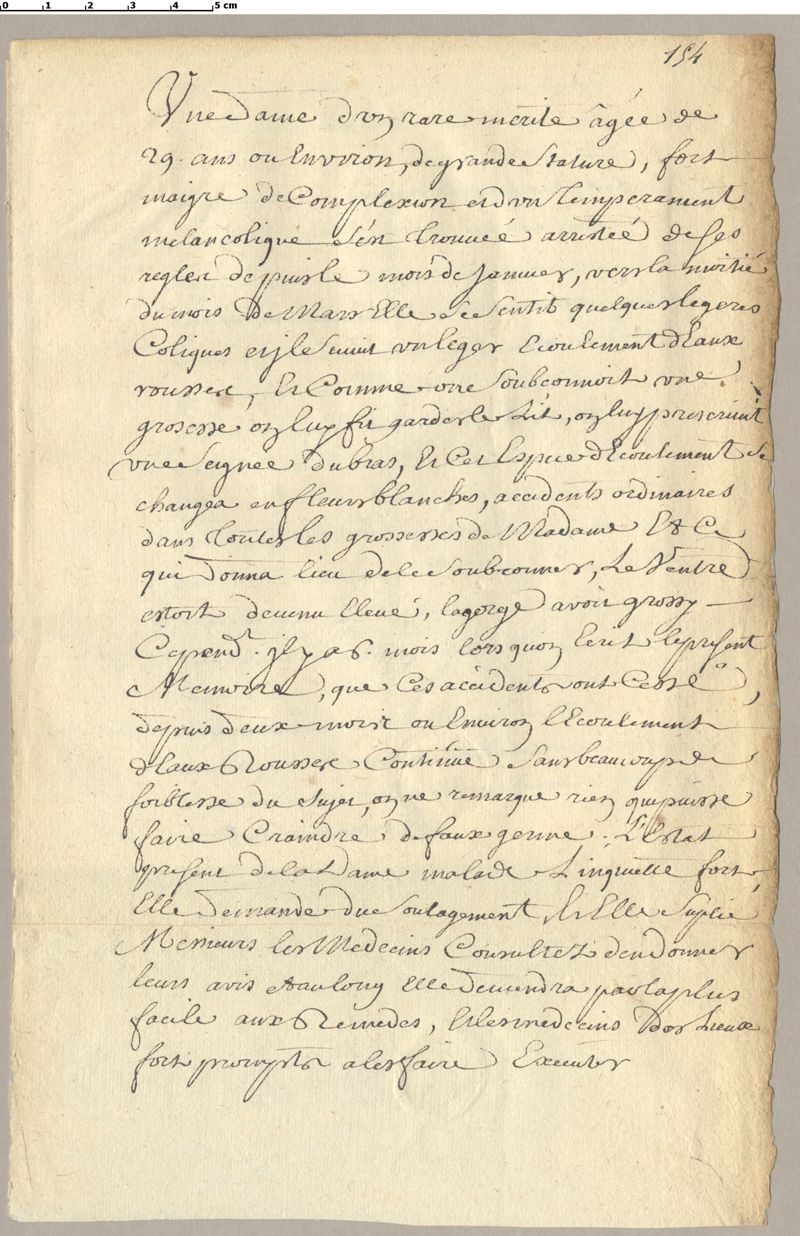 0 1 2 3 4 5 cm
154
Une Dame d'un rare merite âgée de
29. ans ou Environ, de grande Stature, fort
maigre de Complexion et d'un temperament
melancolique s'est trouvée arrestée de ses
regles depuis le mois de Januier, vers la moitié
du mois de Mars Elle se sentit quelques legeres
Coliques et jl suruint un leger Ecoulement d'Eaux
rousses, Et Comme on soubconnoit une
grosesse on luy fit garder le Lit, on luy prescriuit
une Seignée du bras, Et Cet Espece d'Ecoulement se
changea en fleurs blanches, accidents ordinaires
dans toutes les grossesses de Madame Et Ce
qui donna lieu de le soubconner, Le Ventre
estoit devenu Eleué, la gorge avoit grossy
Cepend.t jl y a 6. mois lors quon Ecrit le present
Memoire, que Ces accidents ont Cessé,
depuis deux mois ou Environ l'Ecoulement
d'Eaux Rousses Continüe sans beaucoup de
foiblesse du sujet, on ne remarque rien qui puisse
faire Craindre de faux germe. L'Estat
present de la Dame malade L'inquiette fort,
Elle demande du soulagement, Et Elle suplie
Messieurs les Medecins Consultez d'en donner
leurs avis Au long Elle deuiendra par la plus
facile aux Remedes, Et les medecins des Lieux
fort prompts a les faire Executer